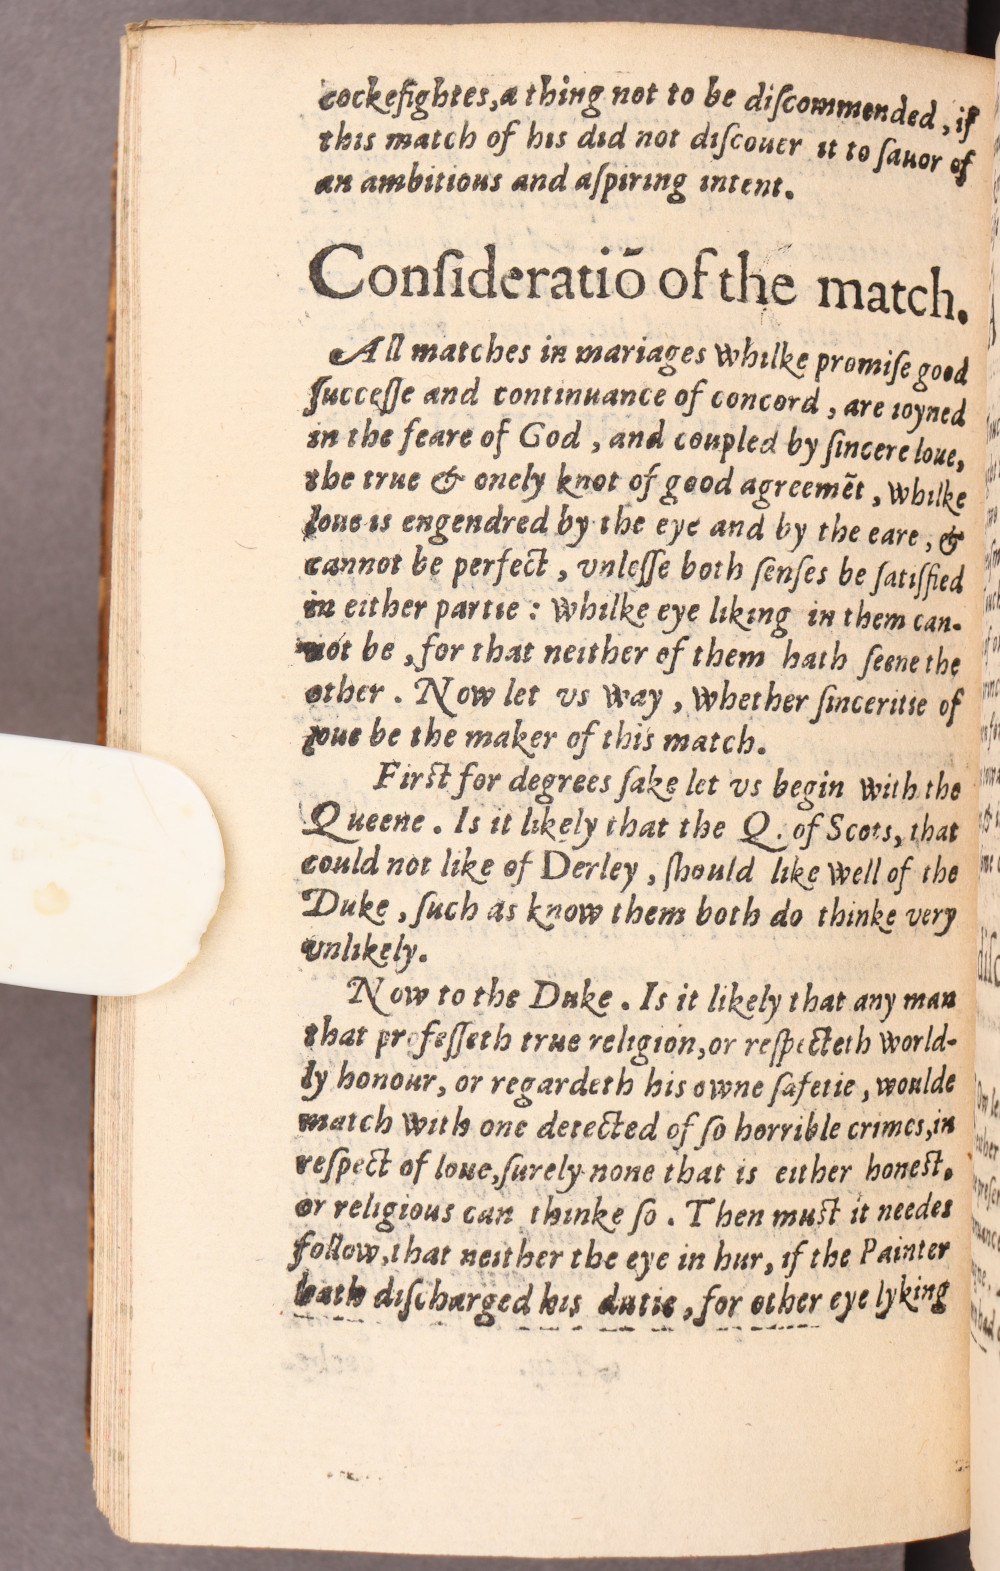 cockefightes, a thing not to be diſcommended, if
this match of his did not diſcouer it to ſauor of
an ambitious and aſpiring intent.
Conſideratiō of the match.
All matches in mariages whilke promiſe good
ſucceſſe and continuance of concord, are ioyned
in the feare of God, and coupled by ſincere loue,
the true & onely knot of good agreemēt, whilke
loue is engendred by the eye and by the eare, &
cannot be perfect, vnleſſe both ſenſes be ſatiſfied
in either partie: whilke eye liking in them can-
not be, for that neither of them hath ſeene the
other. Now let vs way, whether ſinceritie of
loue be the maker of this match.
Firſt for degrees ſake let vs begin with the
Queene. Is it likely that the Q. of Scots, that
could not like of Derley, ſhould like well of the
Duke, ſuch as know them both do thinke very
vnlikely.
Now to the Duke. Is it likely that any man
that profeſſeth true religion, or reſpecteth world-
ly honour, or regardeth his owne ſafetie, woulde
match with one detected of ſo horrible crimes, in
reſpect of loue, ſurely none that is either honeſt.
or religious can thinke ſo. Then muſt it needes
follow, that neither the eye in hur, if the Painter
hath diſcharged his dutie, for other eye lyking